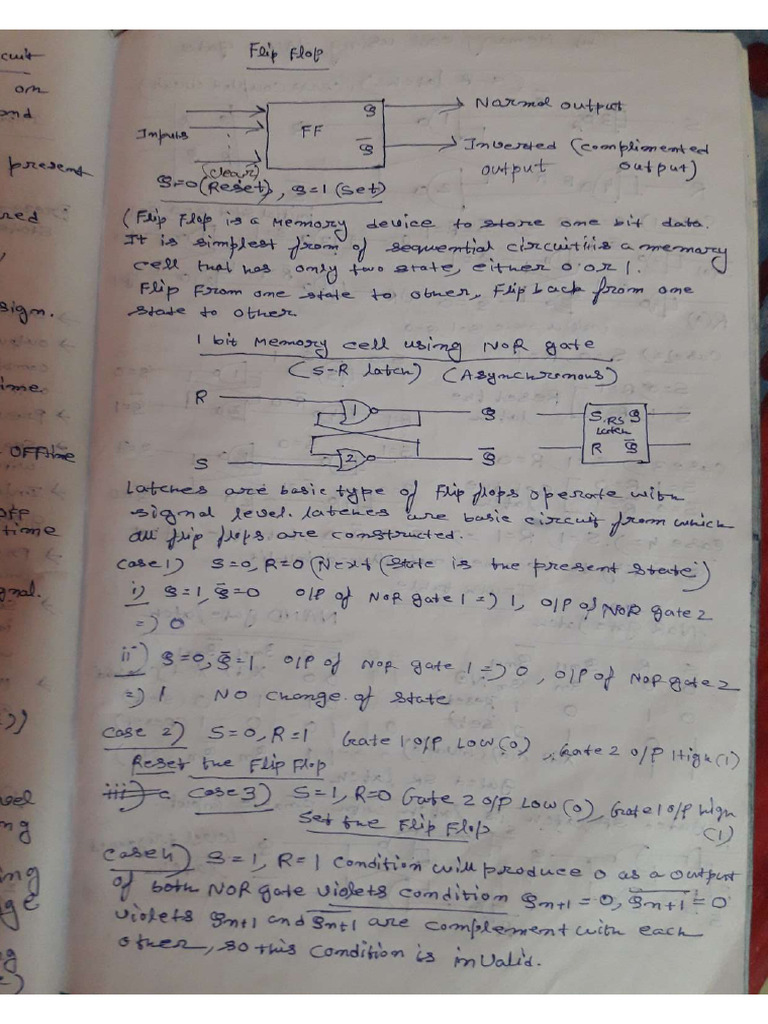 Flip Flop
Q
Normal output
Inputs
FF
Q̅
Inverted (complimented
output output)
(clear)
Q=0 (Reset), Q=1 (Set)
(Flip Flop is a Memory device to store one bit data.
It is simplest from of sequential circuit is a memory
cell that has only two state, either 0 or 1.
Flip From one state to other, Flip back from one
state to other
1 bit Memory cell using NOR gate
(S-R latch) (Asynchronous)
R 1 Q
S 2 Q̅
S RS Q
latch
R Q̅
Latches are basic type of Flip flops operate with
signal level. latches are basic circuit from which
all flip flops are constructed.
Case 1) S=0, R=0 (Next (state is the present state)
i) Q=1, Q̅=0 O/P of NOR gate 1 => 1, O/P of NOR gate 2
=> 0
ii) Q=0, Q̅=1. O/P of NOR gate 1 => 0, O/P of NOR gate 2
=> 1 NO change of state
Case 2) S=0, R=1 Gate 1 O/P LOW (0), Gate 2 O/P High (1)
Reset the Flip Flop
iii) c Case 3) S=1, R=0 Gate 2 O/P Low (0), Gate 1 O/P high
(1)
Set the Flip Flop
Case 4) S=1, R=1 Condition will produce 0 as a output
of both NOR gate violets condition Qn+1 = 0, Q̅n+1 = 0
violets Qn+1 and Q̅n+1 are complement with each
other, so this condition is invalid.
cuit
on
present
sign.
ime.
OFFtime
time
gnal.